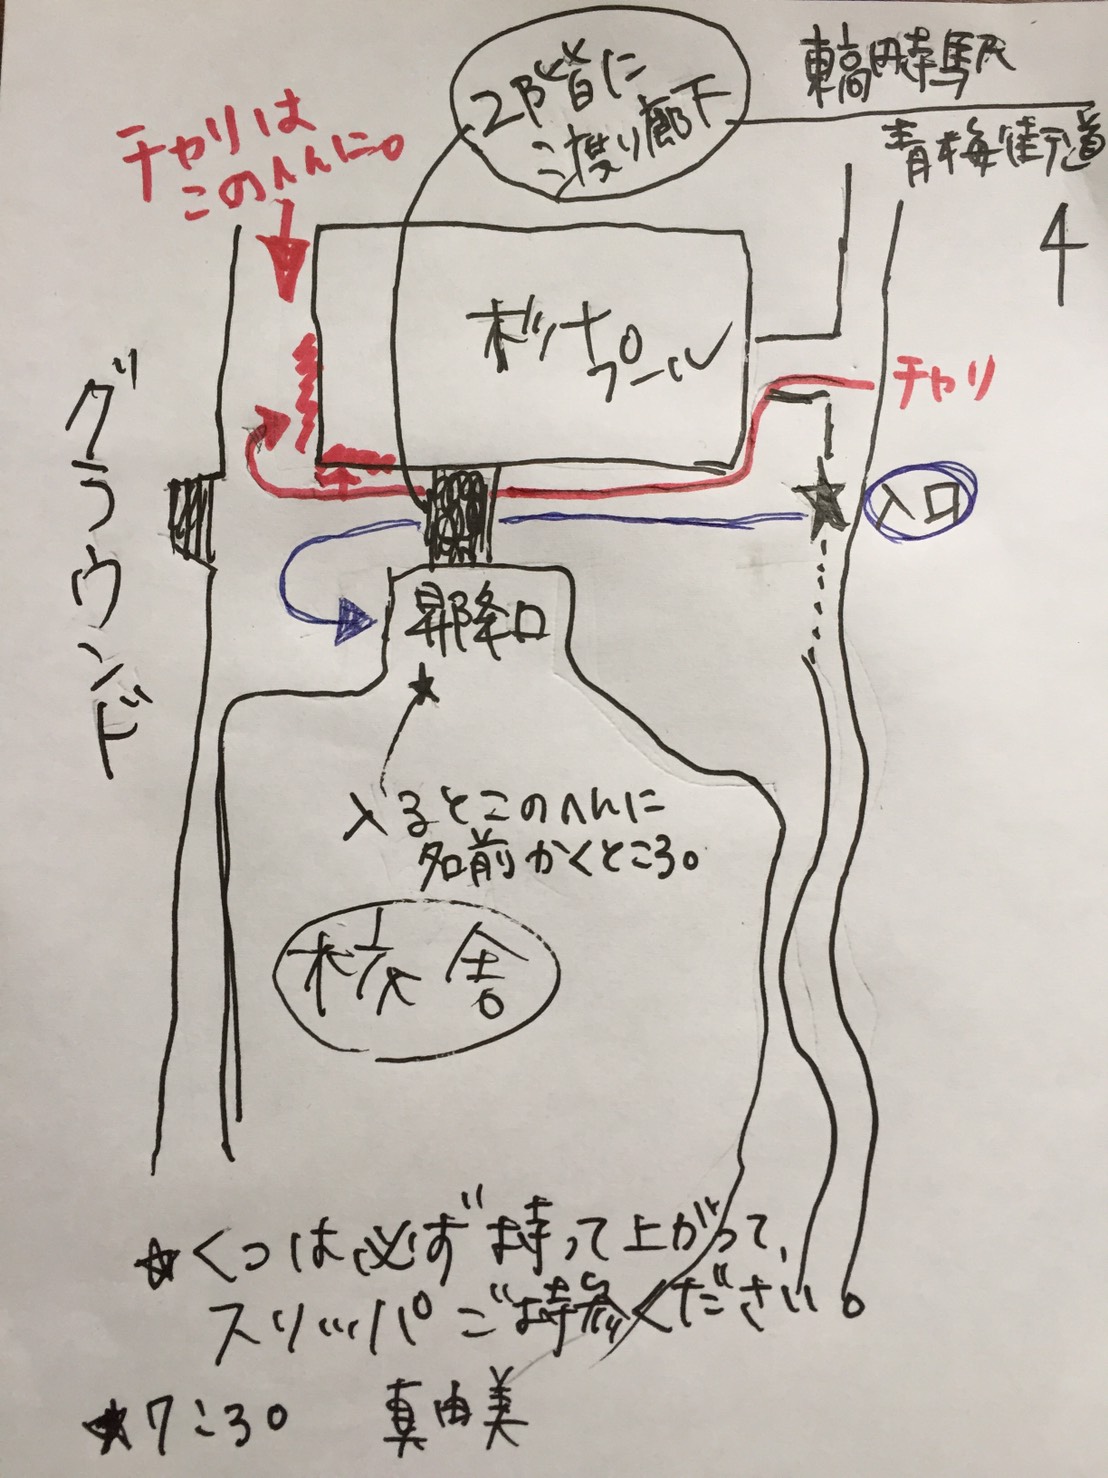 東高円寺駅
青梅街道
4
2階に
渡り廊下
チャリは
このへんに。
プール
チャリ
入口
グラウンド
昇降口
入るとこのへんに
名前かくところ。
校舎
★くつは必ず持って上がって、
スリッパご持参ください。
★7:30 真由美